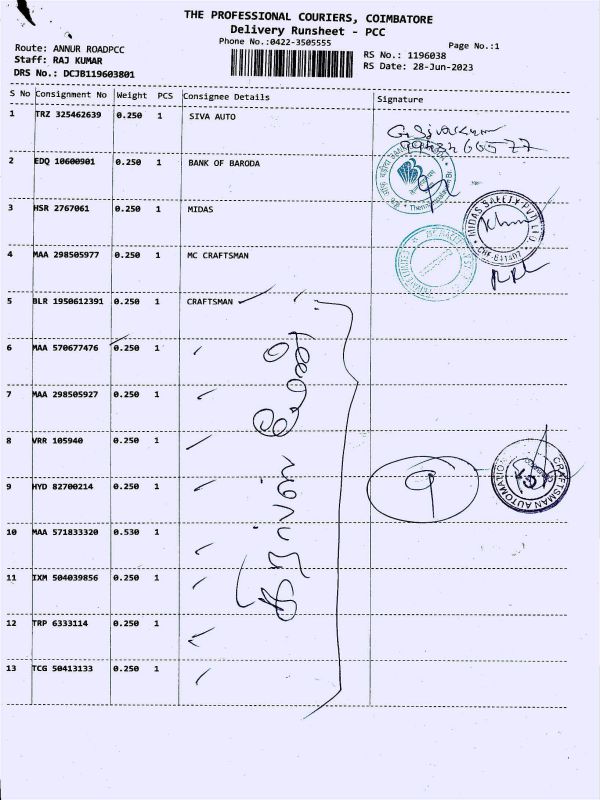 THE PROFESSIONAL COURIERS, COIMBATORE
Delivery Runsheet - PCC
Phone No.:0422-3505555
Page No.:1
Route: ANNUR ROADPCC
Staff: RAJ KUMAR
DRS No.: DCJB119603801
RS No.: 1196038
RS Date: 28-Jun-2023
S No Consignment No Weight PCS Consignee Details Signature
1 TRZ 325462639 0.250 1 SIVA AUTO
2 EDQ 10600901 0.250 1 BANK OF BARODA
3 HSR 2767061 0.250 1 MIDAS
MIDAS SAFETY PVT LTD
4 MAA 298505977 0.250 1 MC CRAFTSMAN
5 BLR 1950612391 0.250 1 CRAFTSMAN
6 MAA 570677476 0.250 1
7 MAA 298505927 0.250 1
8 VRR 105940 0.250 1
9 HYD 82700214 0.250 1
9
CRAFTSMAN AUTOMATION
10 MAA 571833320 0.530 1
11 IXM 504039856 0.250 1
12 TRP 6333114 0.250 1
13 TCG 50413133 0.250 1